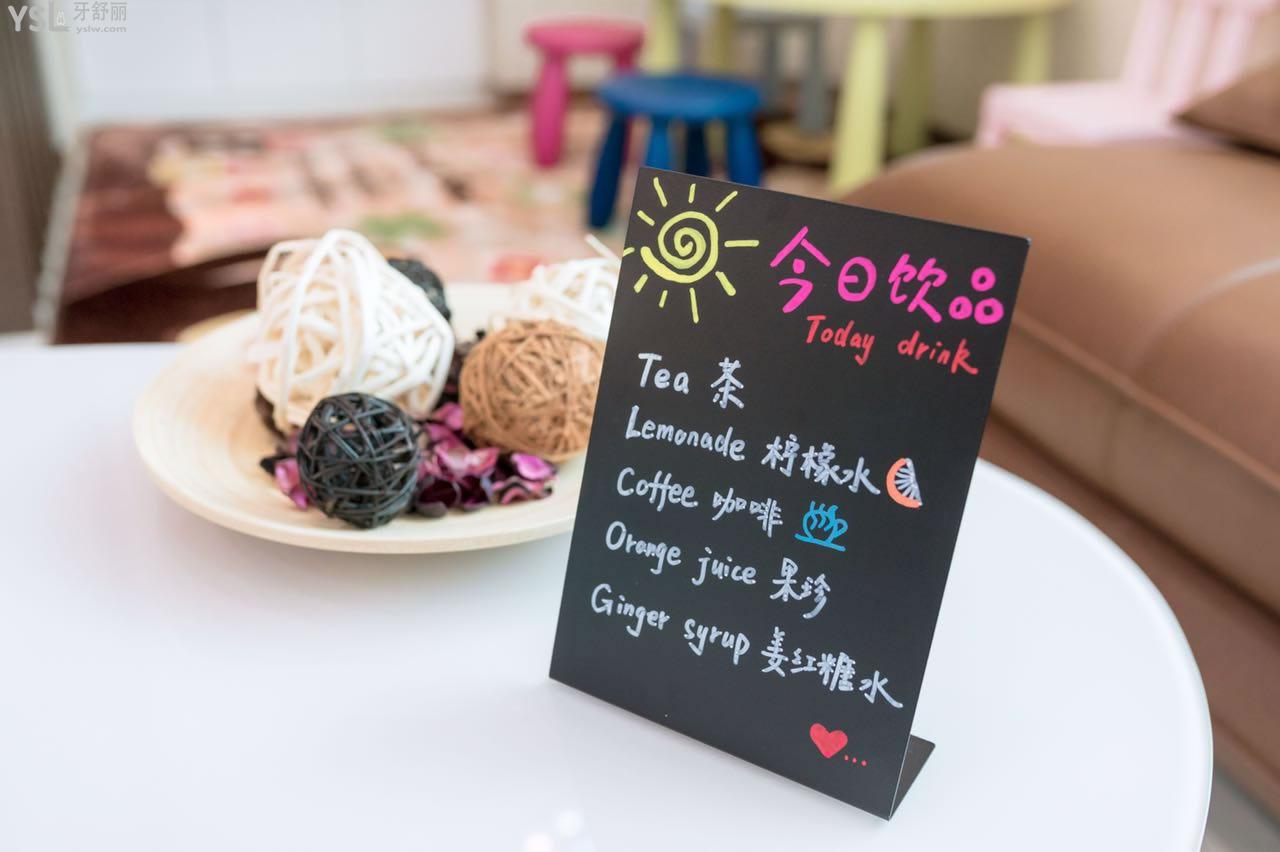 YSL 牙舒丽
yslw.com
今日饮品
Today drink
Tea 茶
Lemonade 柠檬水
Coffee 咖啡
Orange juice 果珍
Ginger syrup 姜红糖水
...